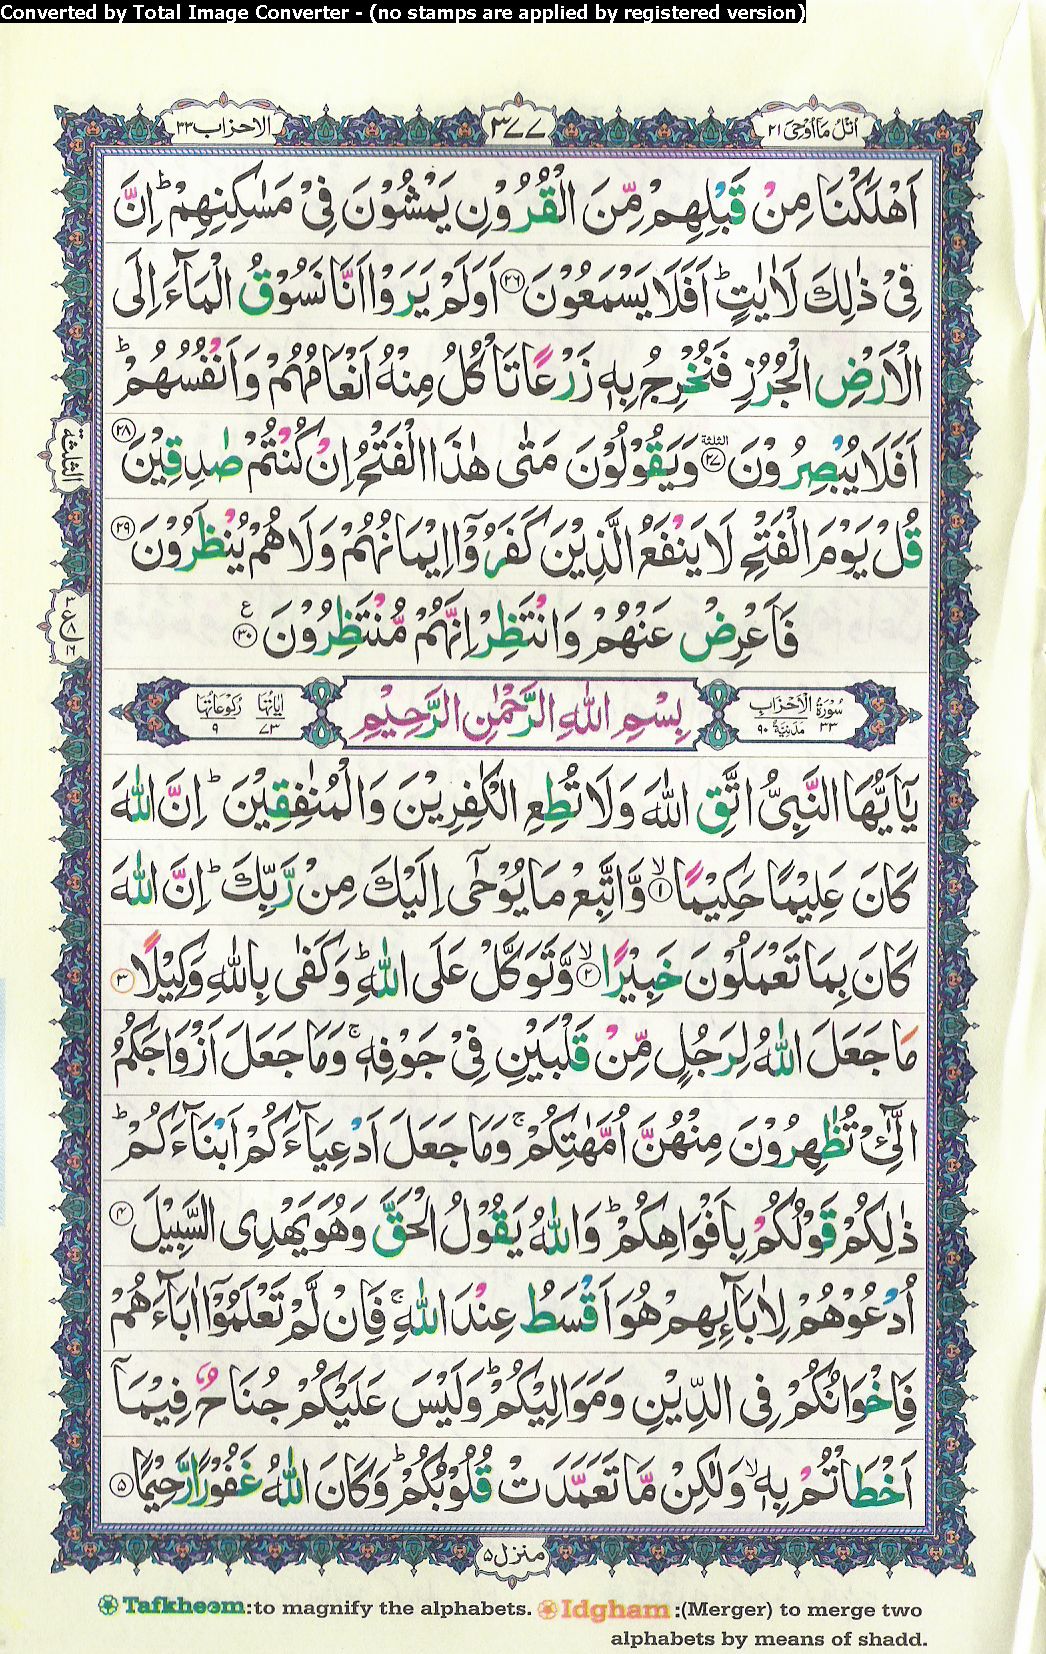 Converted by Total Image Converter - (no stamps are applied by registered version)
اتل ما اوحی ۲۱
۳۷۷
الاحزاب ۳۳
اَهْلَكْنَا مِنْ قَبْلِهِمْ مِّنَ الْقُرُوْنِ يَمْشُوْنَ فِیْ مَسٰكِنِهِمْ ؕ اِنَّ
فِیْ ذٰلِكَ لَاٰیٰتٍ ؕ اَفَلَا یَسْمَعُوْنَ ۲۶ اَوَلَمْ یَرَوْا اَنَّا نَسُوْقُ الْمَآءَ اِلَی
الْاَرْضِ الْجُرُزِ فَنُخْرِجُ بِهٖ زَرْعًا تَاْكُلُ مِنْهُ اَنْعَامُهُمْ وَاَنْفُسُهُمْ ؕ
اَفَلَا یُبْصِرُوْنَ ۲۷ الثلثة وَیَقُوْلُوْنَ مَتٰی هٰذَا الْفَتْحُ اِنْ كُنْتُمْ صٰدِقِیْنَ ۲۸
الثلثة
قُلْ یَوْمَ الْفَتْحِ لَا یَنْفَعُ الَّذِیْنَ كَفَرُوْۤا اِیْمَانُهُمْ وَلَا هُمْ یُنْظَرُوْنَ ۲۹
فَاَعْرِضْ عَنْهُمْ وَانْتَظِرْ اِنَّهُمْ مُّنْتَظِرُوْنَ ۳۰ ع
۳ ع ۸ ۱۶
سُوْرَةُ الْاَحْزَابِ ۳۳ مَدَنِیَّةٌ ۹۰
بِسْمِ اللّٰهِ الرَّحْمٰنِ الرَّحِیْمِ
اٰیَاتُهَا ۷۳ رُكُوْعَاتُهَا ۹
یٰۤاَیُّهَا النَّبِیُّ اتَّقِ اللّٰهَ وَلَا تُطِعِ الْكٰفِرِیْنَ وَالْمُنٰفِقِیْنَ ؕ اِنَّ اللّٰهَ
كَانَ عَلِیْمًا حَكِیْمًا ۙ۱ وَّاتَّبِعْ مَا یُوْحٰۤی اِلَیْكَ مِنْ رَّبِّكَ ؕ اِنَّ اللّٰهَ
كَانَ بِمَا تَعْمَلُوْنَ خَبِیْرًا ۙ۲ وَّتَوَكَّلْ عَلَی اللّٰهِ ؕ وَكَفٰی بِاللّٰهِ وَكِیْلًا ۳
مَا جَعَلَ اللّٰهُ لِرَجُلٍ مِّنْ قَلْبَیْنِ فِیْ جَوْفِهٖ ۚ وَمَا جَعَلَ اَزْوَاجَكُمُ
الّٰٓـِٔیْ تُظٰهِرُوْنَ مِنْهُنَّ اُمَّهٰتِكُمْ ۚ وَمَا جَعَلَ اَدْعِیَآءَكُمْ اَبْنَآءَكُمْ ؕ
ذٰلِكُمْ قَوْلُكُمْ بِاَفْوَاهِكُمْ ؕ وَاللّٰهُ یَقُوْلُ الْحَقَّ وَهُوَ یَهْدِی السَّبِیْلَ ۴
اُدْعُوْهُمْ لِاٰبَآىِٕهِمْ هُوَ اَقْسَطُ عِنْدَ اللّٰهِ ۚ فَاِنْ لَّمْ تَعْلَمُوْۤا اٰبَآءَهُمْ
فَاِخْوَانُكُمْ فِی الدِّیْنِ وَمَوَالِیْكُمْ ؕ وَلَیْسَ عَلَیْكُمْ جُنَاحٌ فِیْمَاۤ
اَخْطَاْتُمْ بِهٖ ۙ وَلٰكِنْ مَّا تَعَمَّدَتْ قُلُوْبُكُمْ ؕ وَكَانَ اللّٰهُ غَفُوْرًا رَّحِیْمًا ۵
منزل ۵
Tafkheem:to magnify the alphabets. Idgham:(Merger) to merge two
alphabets by means of shadd.